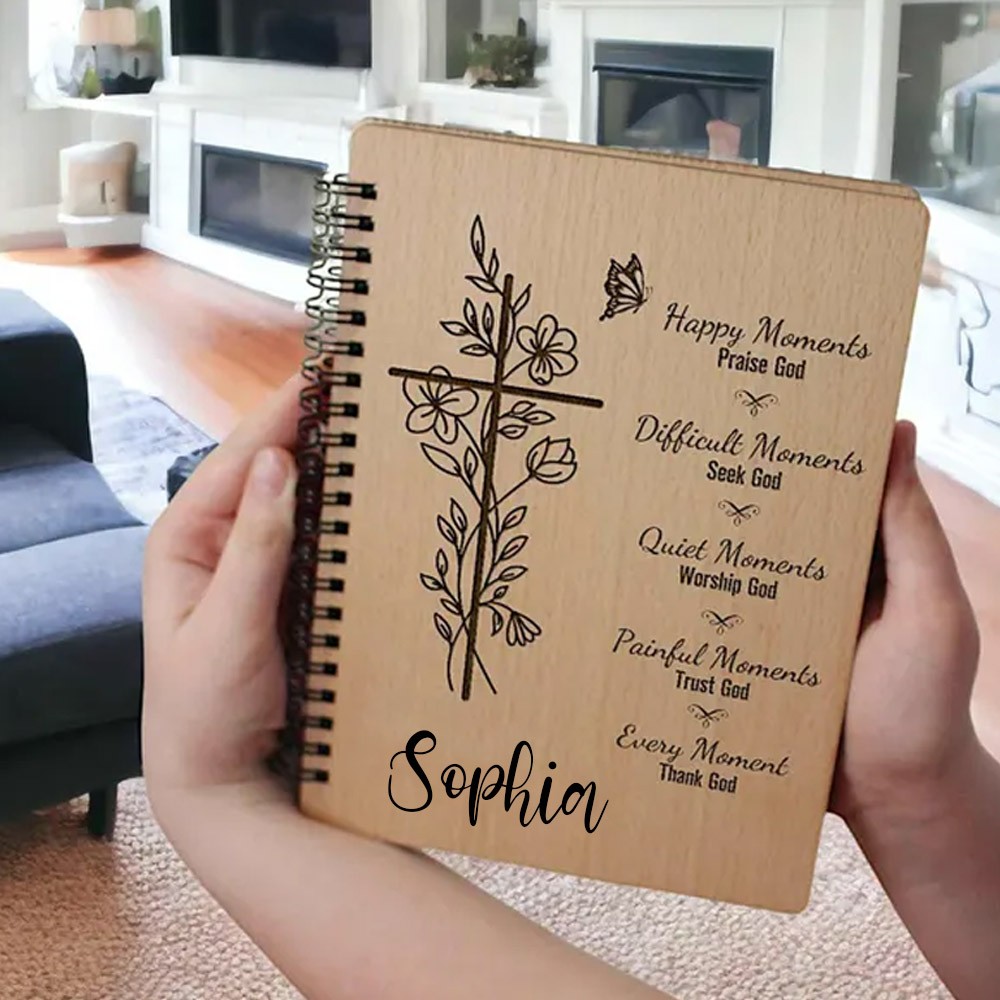 Happy Moments
Praise God
Difficult Moments
Seek God
Quiet Moments
Worship God
Painful Moments
Trust God
Every Moment
Thank God
Sophia